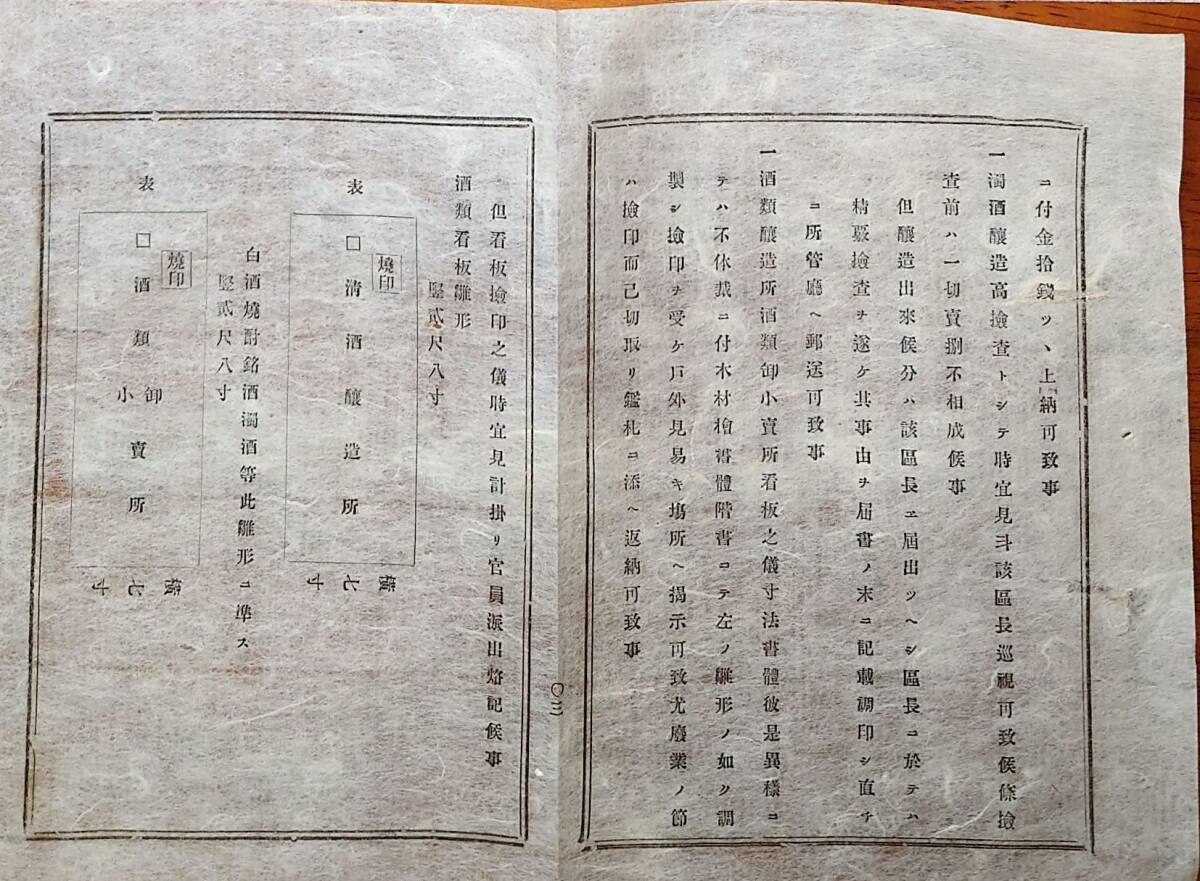 ニ付金拾錢ツヽ上納可致事
一濁酒釀造高撿査トシテ時宜見斗該區長巡視可致候條撿
査前ハ一切賣捌不相成候事
但釀造出來候分ハ該區長ヱ屆出ツヘシ區長ニ於テハ
精嚴撿查ヲ遂ケ其事由ヲ屆書ノ末ニ記載調印シ直チ
ニ所管廳ヘ郵送可致事
一酒類釀造所酒類卸小賣所看板之儀寸法書體彼是異樣ニ
テハ不体裁ニ付木材檜書體階書ニテ左ノ雛形ノ如ク調
製シ撿印ヲ受ケ戸外見易キ塲所ヘ揭示可致尤廢業ノ節
ハ撿印而已切取リ鑑札ニ添ヘ返納可致事
〇三
但看板撿印之儀時宜見計掛リ官員派出烙記候事
酒類看板雛形
竪貳尺八寸
表
燒印
□淸酒釀造所
橫七寸
白酒燒酎銘酒濁酒等此雛形ニ準ス
竪貳尺八寸
表
燒印
□酒類卸小賣所
橫七寸